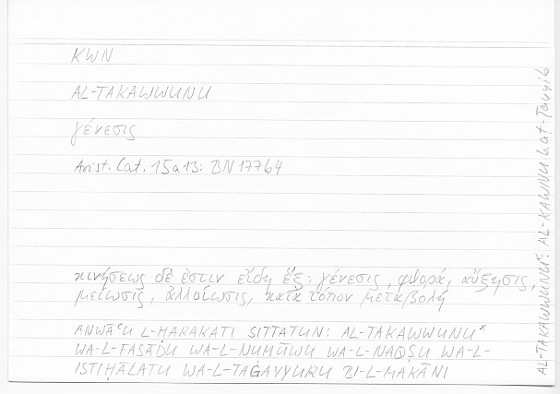 KWN
AL-TAKAWWUNU
γένεσις
Arist. Cat. 15a13: BN 177b4
κινήσεως δέ ἐστιν εἴδη ἕξ: γένεσις, φθορά, αὔξησις,
μείωσις, ἀλλοίωσις, κατὰ τόπον μεταβολή
ANWĀʿU L-ḤARAKATI SITTATUN: AL-TAKAWWUNUˣ
WA-L-FASĀDU WA-L-NUMŪWU WA-L-NAQṢU WA-L-
ISTIḤĀLATU WA-L-TAĠAYYURU BI-L-MAKĀNI
AL-TAKAWWUNUˣ: AL-KAWNU Cat-Ṭayyib